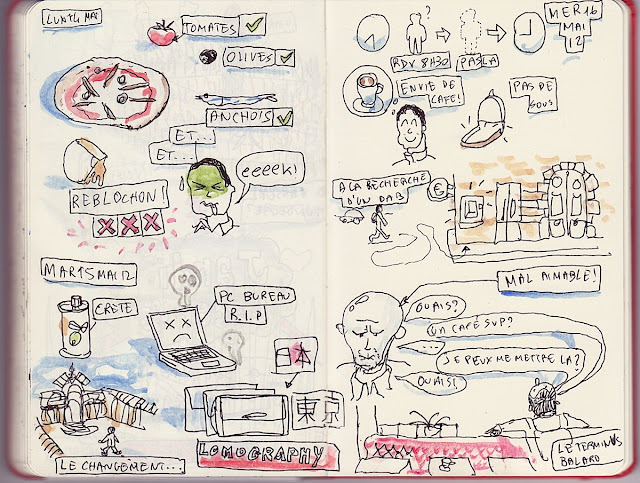 LUN 14 MAI
TOMATES
OLIVES
ANCHOIS
ET...
ET...
eeeeK!
REBLOCHON!
XXX
MAR 15 MAI 12
CRETE
PC BUREAU
R.I.P
日本
東京
LOMOGRAPHY
LE CHANGEMENT...
MER 16
MAI
12
?
RDV 8H30
PAS LA
ENVIE DE
CAFE!
PAS DE
SOUS
A LA RECHERCHE
D'UN DAB
€
MAL AIMABLE!
OUAIS?
UN CAFÉ SVP?
....
JE PEUX ME METTRE LA?
OUAIS!
LE TERMINUS
BALARD